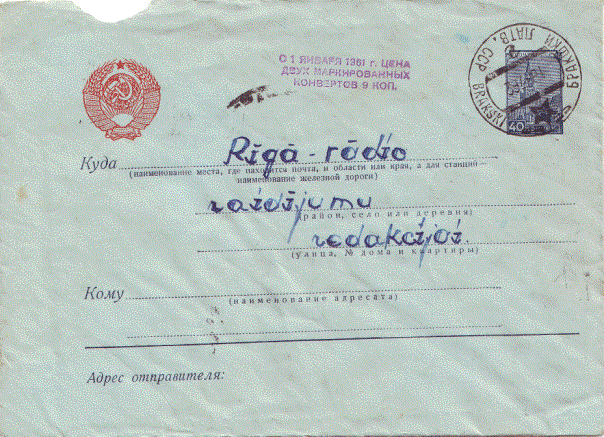 С 1 ЯНВАРЯ 1961 г. ЦЕНА
ДВУХ МАРКИРОВАННЫХ
КОНВЕРТОВ 9 КОП.
БРАКШКИ ЛАТВ. ССР
BRAKŠĶI
40
Куда Rīgā - rādio
(наименование места, где находится почта, и области или края, а для станций—
наименование железной дороги)
raidījumu
(район, село или деревня)
redakcijai.
(улица, № дома и квартиры)
Кому
(наименование адресата)
Адрес отправителя: